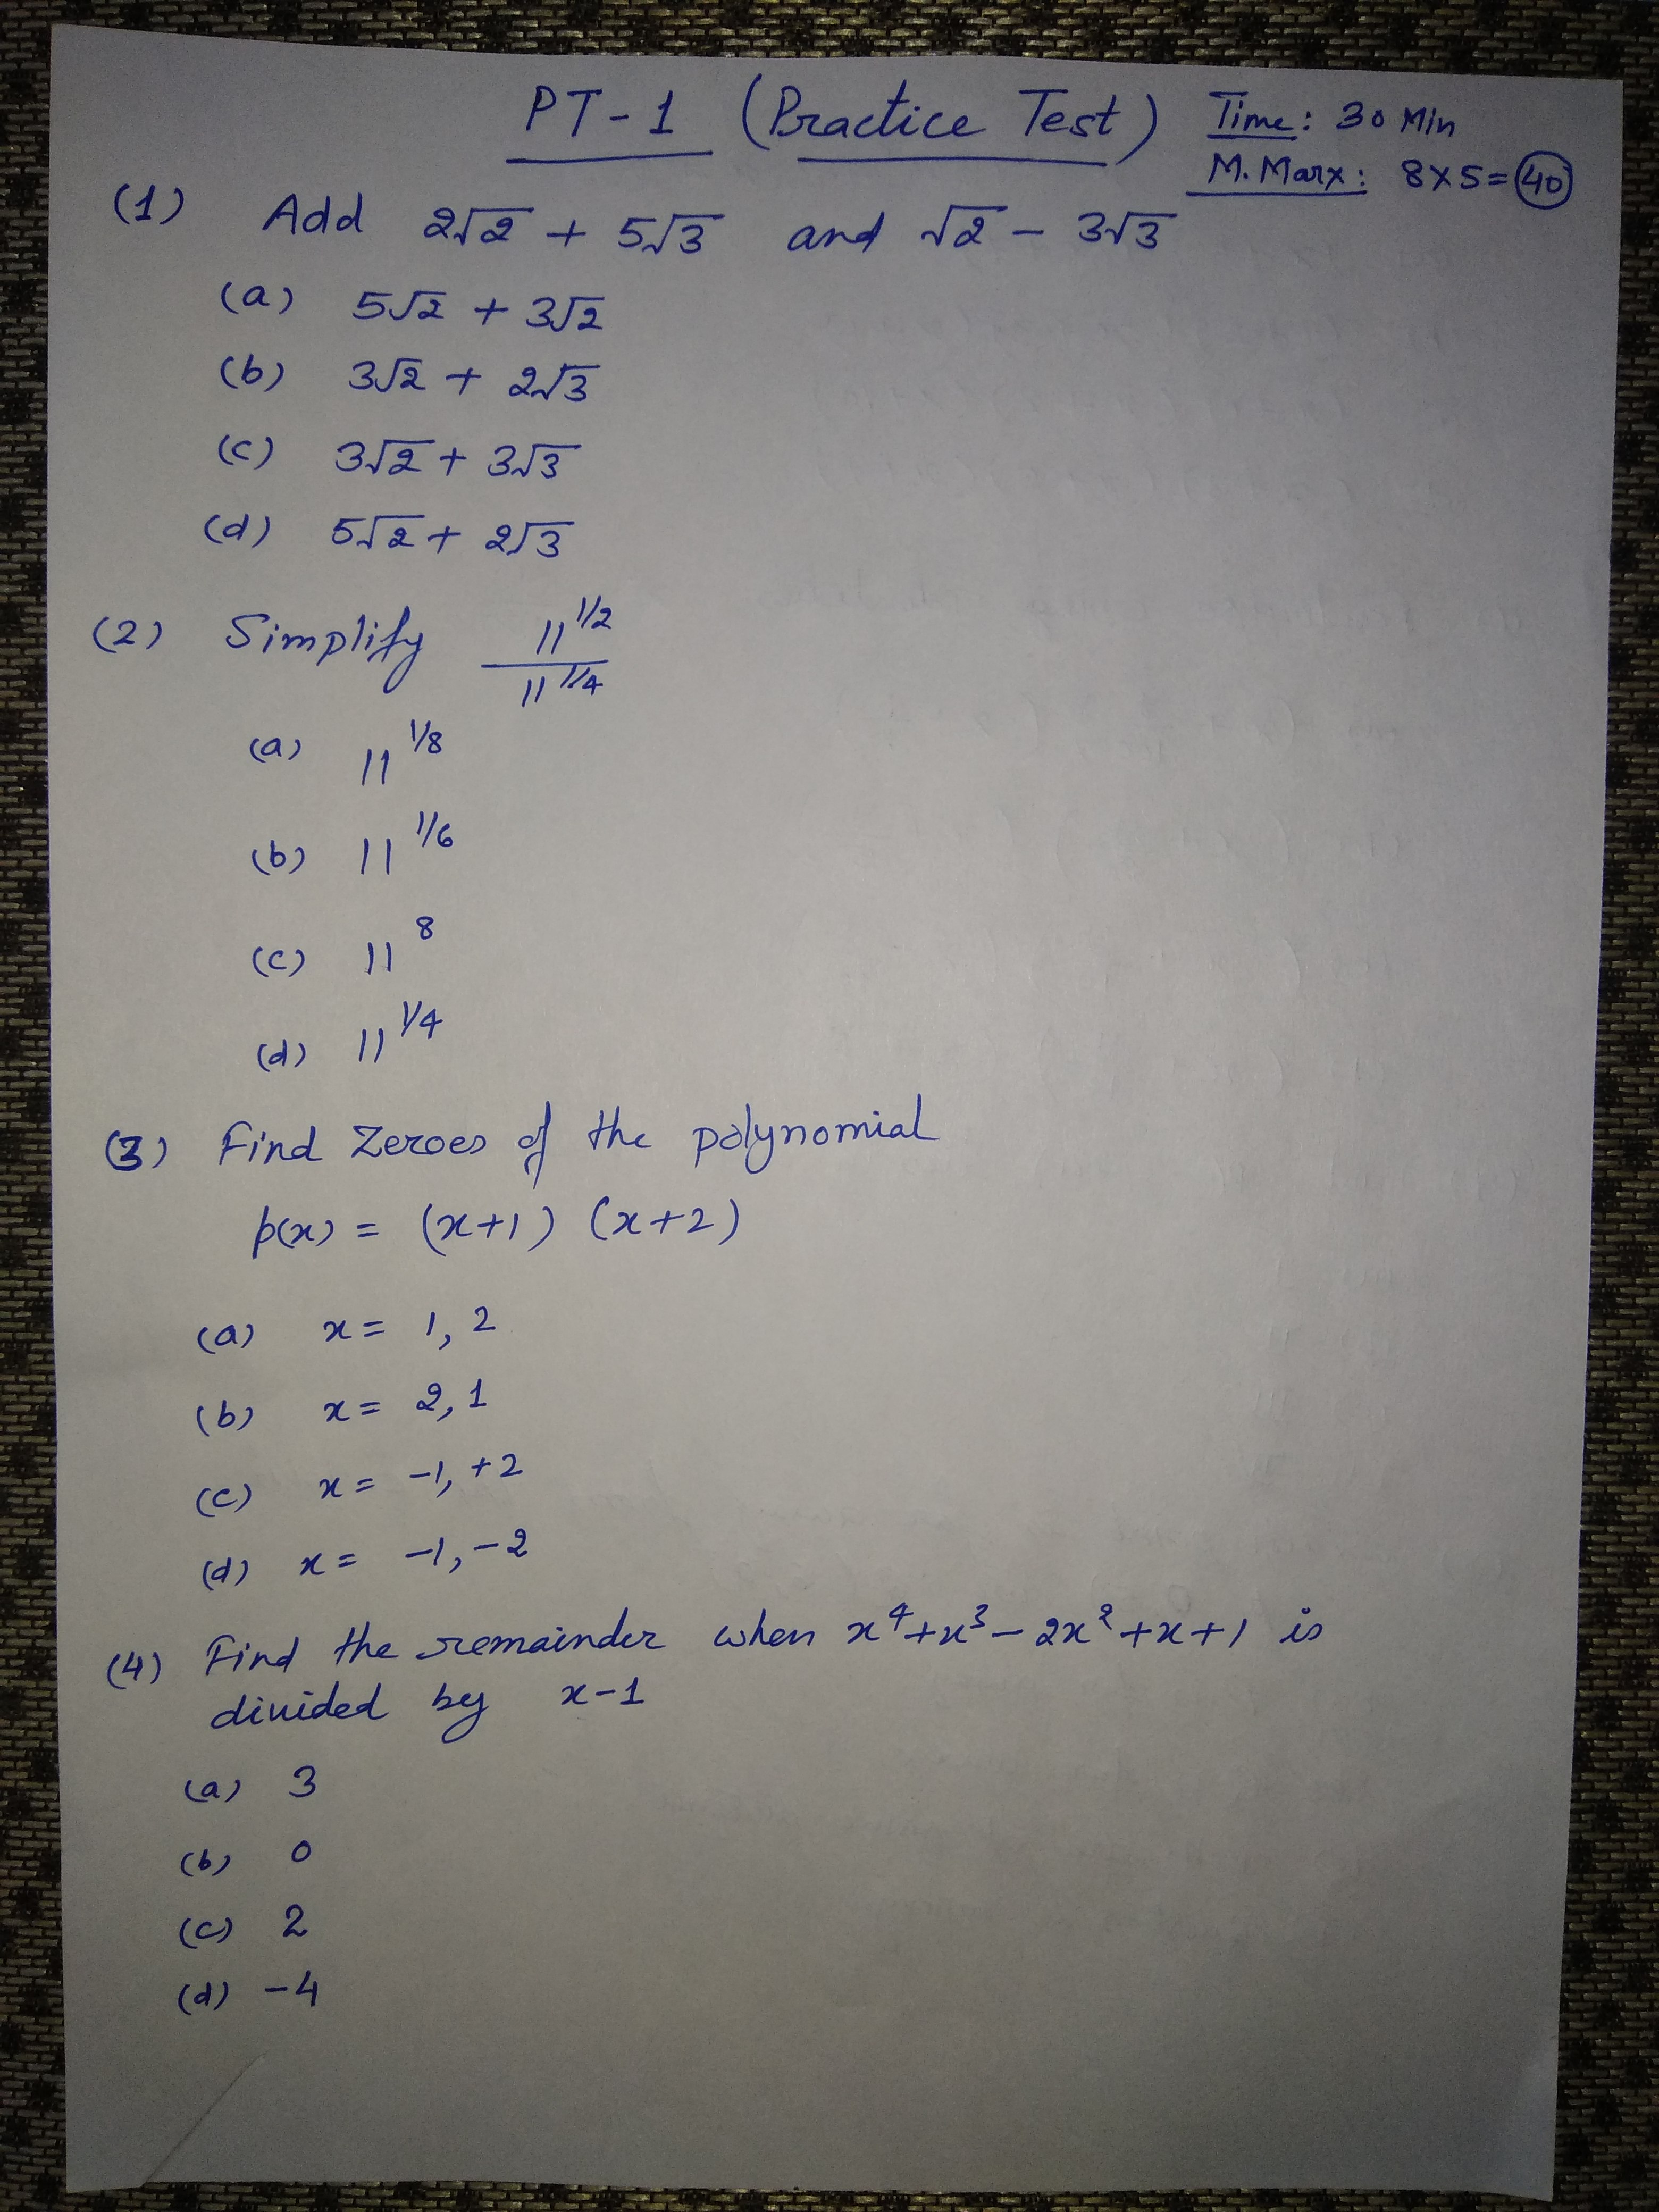 PT-1 (Practice Test) Time: 30 Min
M. Marx: 8x5=40
(1) Add 2√2 + 5√3 and √2 - 3√3
(a) 5√2 + 3√2
(b) 3√2 + 2√3
(c) 3√2 + 3√3
(d) 5√2 + 2√3
(2) Simplify 11^1/2 / 11^1/4
(a) 11^1/8
(b) 11^1/6
(c) 11^8
(d) 11^1/4
(3) Find Zeroes of the polynomial
p(x) = (x+1) (x+2)
(a) x = 1, 2
(b) x = 2, 1
(c) x = -1, +2
(d) x = -1, -2
(4) Find the remainder when x^4+x^3-2x^2+x+1 is
divided by x-1
(a) 3
(b) 0
(c) 2
(d) -4